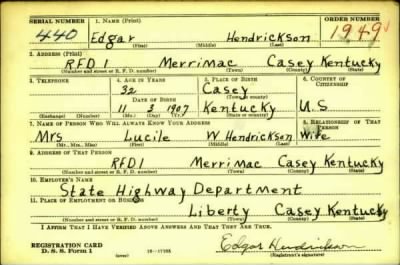 SERIAL NUMBER 1. NAME (Print) ORDER NUMBER
440 Edgar Hendrickson 1949
(First) (Middle) (Last)
2. ADDRESS (Print)
RFD 1 Merrimac Casey Kentucky
(Number and street or R. F. D. number) (Town) (County) (State)
3. TELEPHONE 4. AGE IN YEARS 5. PLACE OF BIRTH 6. COUNTRY OF CITIZENSHIP
32 Casey
DATE OF BIRTH (Town or county)
11 3 1907 Kentucky U.S
(Exchange) (No.) (Mo.) (Day) (Yr.) (State or country)
7. NAME OF PERSON WHO WILL ALWAYS KNOW YOUR ADDRESS 8. RELATIONSHIP OF THAT PERSON
Mrs Lucile W Hendrickson Wife
(Mr., Mrs., Miss) (First) (Middle) (Last)
9. ADDRESS OF THAT PERSON
RFD 1 Merrimac Casey Kentucky
(Number and street or R. F. D. number) (Town) (County) (State)
10. EMPLOYER'S NAME
State Highway Department
11. PLACE OF EMPLOYMENT OR BUSINESS
Liberty Casey Kentucky
(Number and street or R. F. D. number) (Town) (County) (State)
I AFFIRM THAT I HAVE VERIFIED ABOVE ANSWERS AND THAT THEY ARE TRUE.
REGISTRATION CARD Edgar Hendrickson
D. S. S. Form 1 (over) (Registrant's signature)